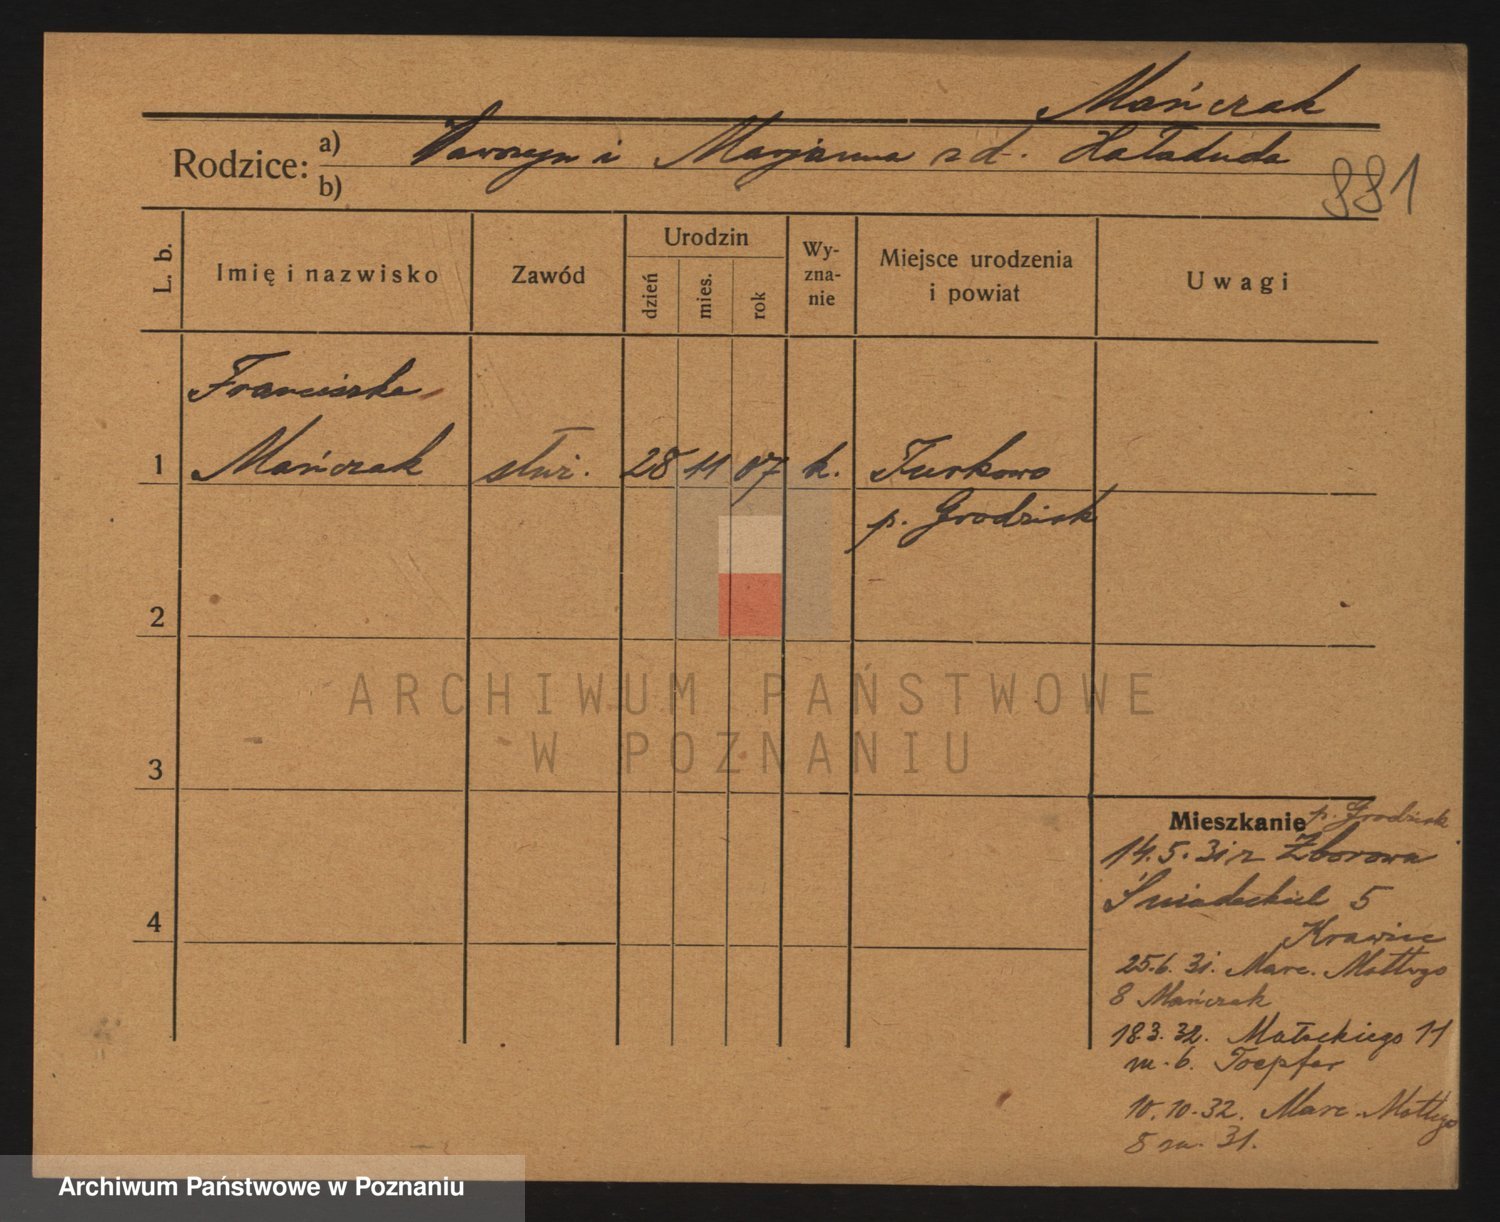 Mańczak
Rodzice: a) Wawrzyn i Marjanna z d. Haładuda
b)
991
L. b.
Imię i nazwisko
Zawód
Urodzin
dzień
mies.
rok
Wy-
zna-
nie
Miejsce urodzenia
i powiat
Uwagi
Franciszka
1 Mańczak służ. 28 11 07 k. Turkowo
p. Grodzisk
2
3
4
ARCHIWUM PAŃSTWOWE
W POZNANIU
Mieszkanie p. Grodzisk
14.5.31 z Zborowa
Śniadeckich 5
Krawiec
25.6.31. Marc. Mottego
8 Mańczak
18.3.32. Małeckiego 11
m. 6. Toepfer
10.10.32. Marc. Mottego
8 m. 31.
Archiwum Państwowe w Poznaniu